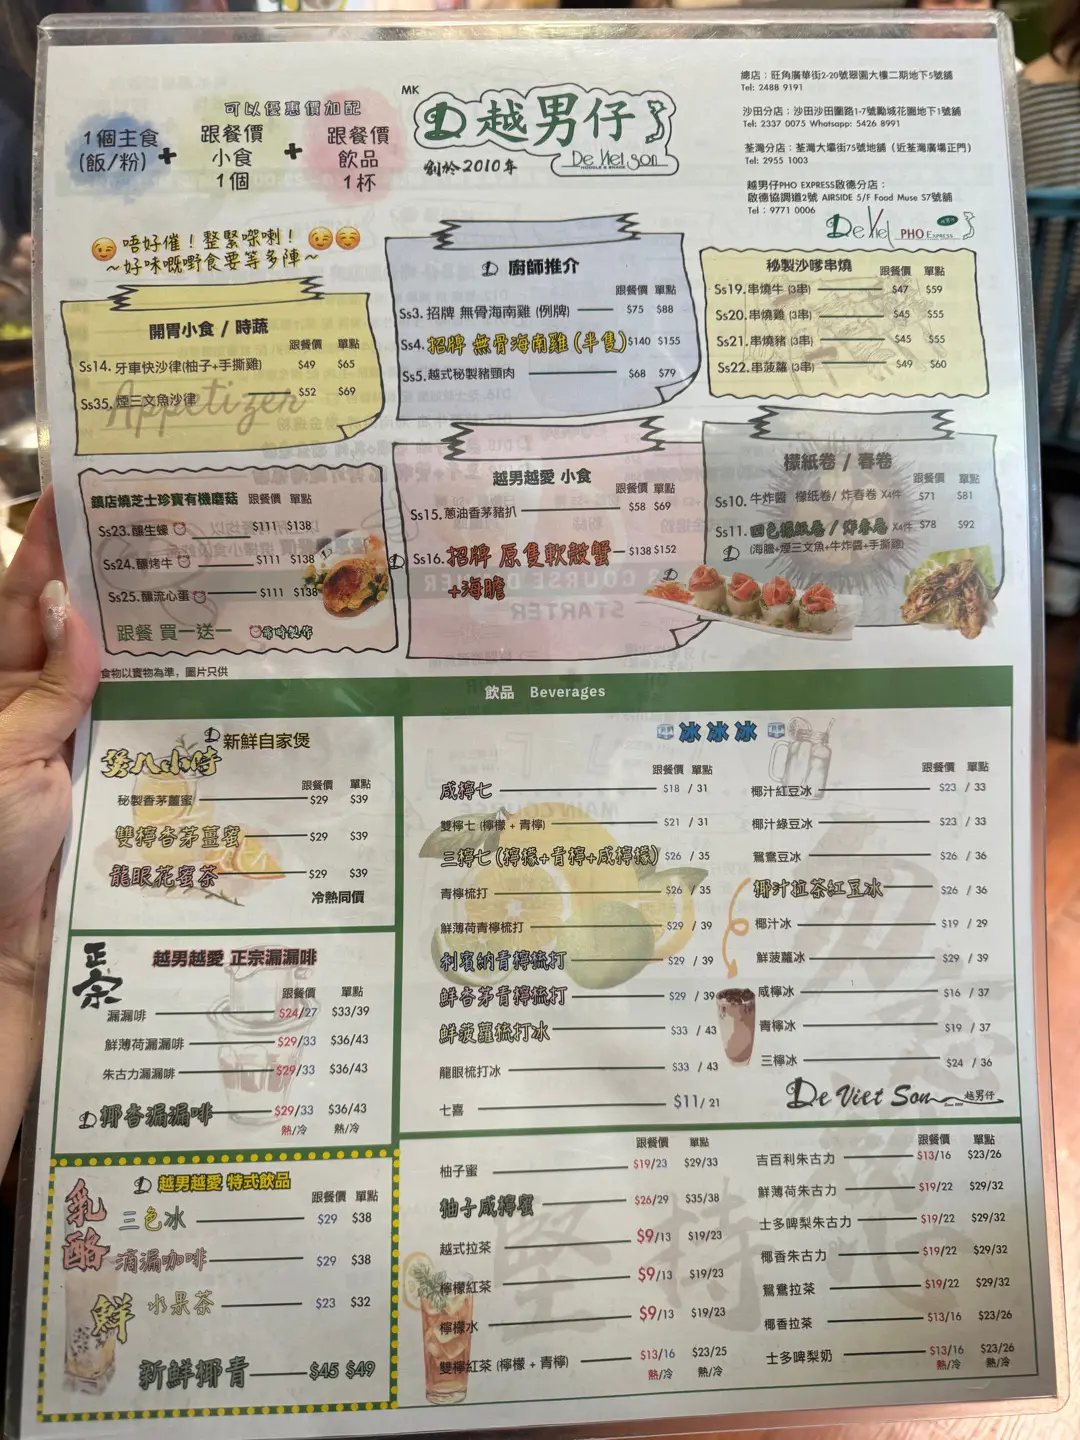 可以優惠價加配
1個主食
(飯/粉)
+
跟餐價
小食
1個
+
跟餐價
飲品
1杯
MK
越男仔
創於2010年
De Viet Son
NOODLE & SNACK
總店：旺角廣華街2-20號翠園大樓二期地下5號舖
Tel: 2488 9191
沙田分店：沙田沙田圍路1-7號勵城花園地下1號舖
Tel: 2337 0075 Whatsapp: 5426 8991
荃灣分店：荃灣大壩街75號地舖（近荃灣廣場正門）
Tel: 2955 1003
越男仔PHO EXPRESS啟德分店：
啟德協調道2號 AIRSIDE 5/F Food Muse S7號舖
Tel：9771 0006
De Viet PHO EXPRESS
唔好催！整緊㗎喇！
～好味嘅嘢食要等多陣～
開胃小食 / 時蔬
跟餐價 單點
Ss14. 牙車快沙律(柚子+手撕雞) $49 $65
Ss35. 煙三文魚沙律 $52 $69
Appetizer
廚師推介
跟餐價 單點
Ss3. 招牌 無骨海南雞 (例牌) $75 $88
Ss4. 招牌 無骨海南雞 (半隻) $140 $155
Ss5. 越式秘製豬頸肉 $68 $79
秘製沙嗲串燒
跟餐價 單點
Ss19. 串燒牛 (3串) $47 $59
Ss20. 串燒雞 (3串) $45 $55
Ss21. 串燒豬 (3串) $45 $55
Ss22. 串菠蘿 (3串) $49 $60
鎮店燒芝士珍寶有機磨菇 跟餐價 單點
Ss23. 釀生蠔 $111 $138
Ss24. 釀烤牛 $111 $138
Ss25. 釀流心蛋 $111 $138
跟餐 買一送一 需時製作
越男越愛 小食
跟餐價 單點
Ss15. 蔥油香茅豬扒 $58 $69
Ss16. 招牌 原隻軟殼蟹 $138 $152
+海膽
檬紙卷 / 春卷
跟餐價 單點
Ss10. 牛炸醬 檬紙卷/ 炸春卷 X4件 $71 $81
Ss11. 四色檬紙卷 / 炸春卷 X4件 $78 $92
(海膽+煙三文魚+牛炸醬+手撕雞)
食物以實物為準，圖片只供
飲品 Beverages
煲八小時
新鮮自家煲
跟餐價 單點
秘製香茅薑蜜 $29 $39
雙檸香茅薑蜜 $29 $39
龍眼花蜜茶 $29 $39
冷熱同價
正宗
越男越愛 正宗滴漏啡
跟餐價 單點
滴漏啡 $24/27 $33/39
鮮薄荷滴漏啡 $29/33 $36/43
朱古力滴漏啡 $29/33 $36/43
椰香滴漏啡 $29/33 $36/43
熱/冷 熱/冷
乳酪
鮮
越男越愛 特式飲品
跟餐價 單點
三色冰 $29 $38
滴漏咖啡 $29 $38
水果茶 $23 $32
新鮮椰青 $45 $49
冰冰冰
跟餐價 單點
咸檸七 $18 / 31
雙檸七 (檸檬 + 青檸) $21 / 31
三檸七 (檸檬+青檸+咸檸檬) $26 / 35
青檸梳打 $26 / 35
鮮薄荷青檸梳打 $29 / 39
利賓納青檸梳打 $29 / 39
鮮香茅青檸梳打 $29 / 39
鮮菠蘿梳打冰 $33 / 43
龍眼梳打冰 $33 / 43
七喜 $11/ 21
跟餐價 單點
椰汁紅豆冰 $23 / 33
椰汁綠豆冰 $23 / 33
鴛鴦豆冰 $26 / 36
椰汁拉茶紅豆冰 $26 / 36
椰汁冰 $19 / 29
鮮菠蘿冰 $29 / 39
咸檸冰 $16 / 37
青檸冰 $19 / 37
三檸冰 $24 / 36
De Viet Son 越男仔
跟餐價 單點
柚子蜜 $19/23 $29/33
柚子咸檸蜜 $26/29 $35/38
越式拉茶 $9/13 $19/23
檸檬紅茶 $9/13 $19/23
檸檬水 $9/13 $19/23
雙檸紅茶 (檸檬 + 青檸) $13/16 $23/25
熱/冷 熱/冷
跟餐價 單點
吉百利朱古力 $13/16 $23/26
鮮薄荷朱古力 $19/22 $29/32
士多啤梨朱古力 $19/22 $29/32
椰香朱古力 $19/22 $29/32
鴛鴦拉茶 $19/22 $29/32
椰香拉茶 $13/16 $23/26
士多啤梨奶 $13/16 $23/26
熱/冷 熱/冷